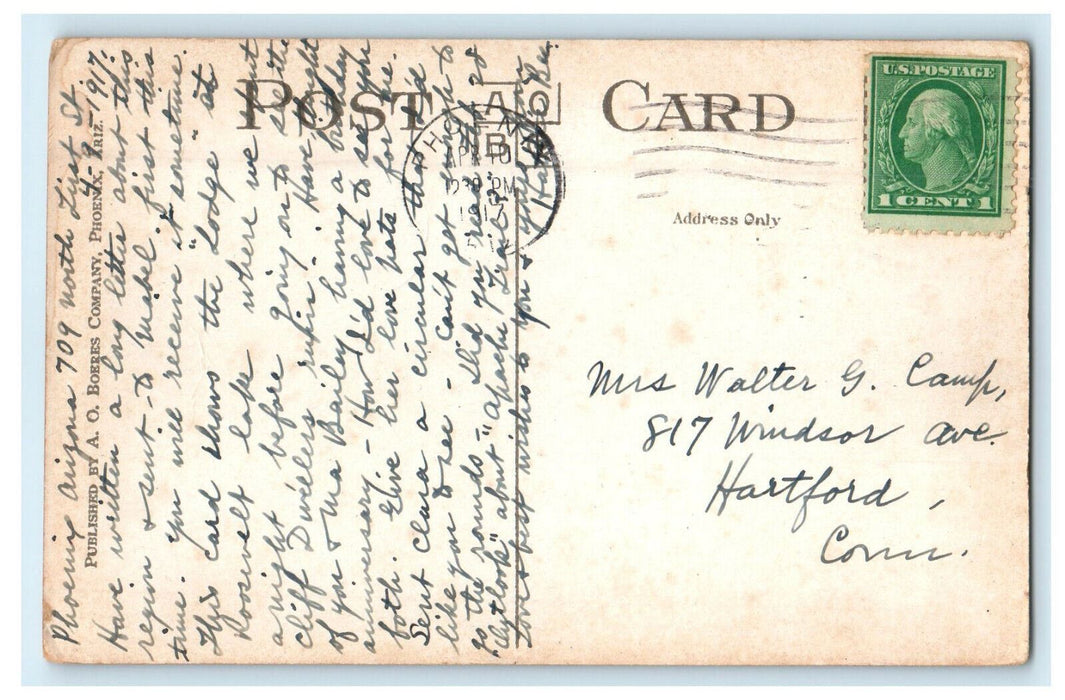 POST CARD
Address Only
U.S. POSTAGE
1 CENT 1
APR 10
12 30 PM
PUBLISHED BY A. O. BOERES COMPANY, PHOENIX, ARIZ.
Phoenix Arizona 709 North First St.
4-9-1917.
Have written a long letter about this
region & sent to Mabel first this
time. You will receive it sometime.
This card shows the "Lodge" at
Roosevelt Lake where we spent
a night before going on to see the
Cliff Dwellers ruins. Have thought
of you & Ma Bailey having a birthday
anniversary - How I'd love to see you
both. Give her love pats for me.
Sent Clara a circular that I'd
like you to see - Can't get enough to
go the rounds - Did you read in
"Outlook" about "Apache Trail"?
Love & best wishes to you & yours from
Mrs Walter G. Camp,
817 Windsor Ave.
Hartford,
Conn.